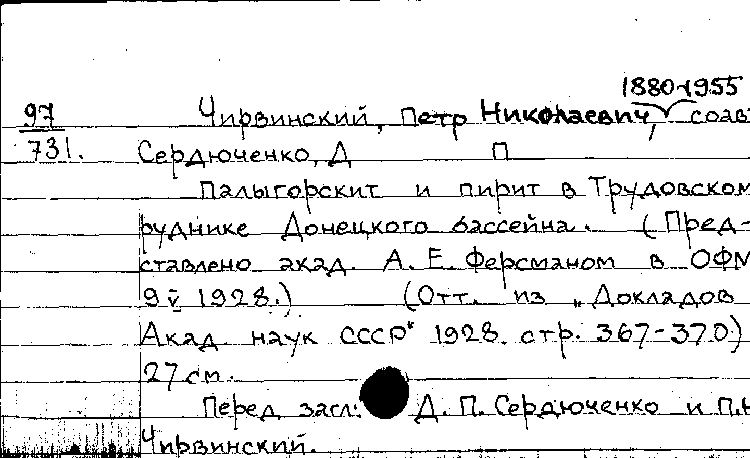 1880-1955
97 Чирвинский, Петр Николаевич, соавт
731. Сердюченко, Д П
Палыгорскит и пирит в Трудовском
руднике Донецкого бассейна. (Пред-
ставлено акад. А. Е. Ферсманом в ОФМ
9 V 1928.) (Отт. из „Докладов
Акад. наук СССР" 1928. стр. 367-370)
27 см.
Перед загл: Д. П. Сердюченко и П.Н
Чирвинский.